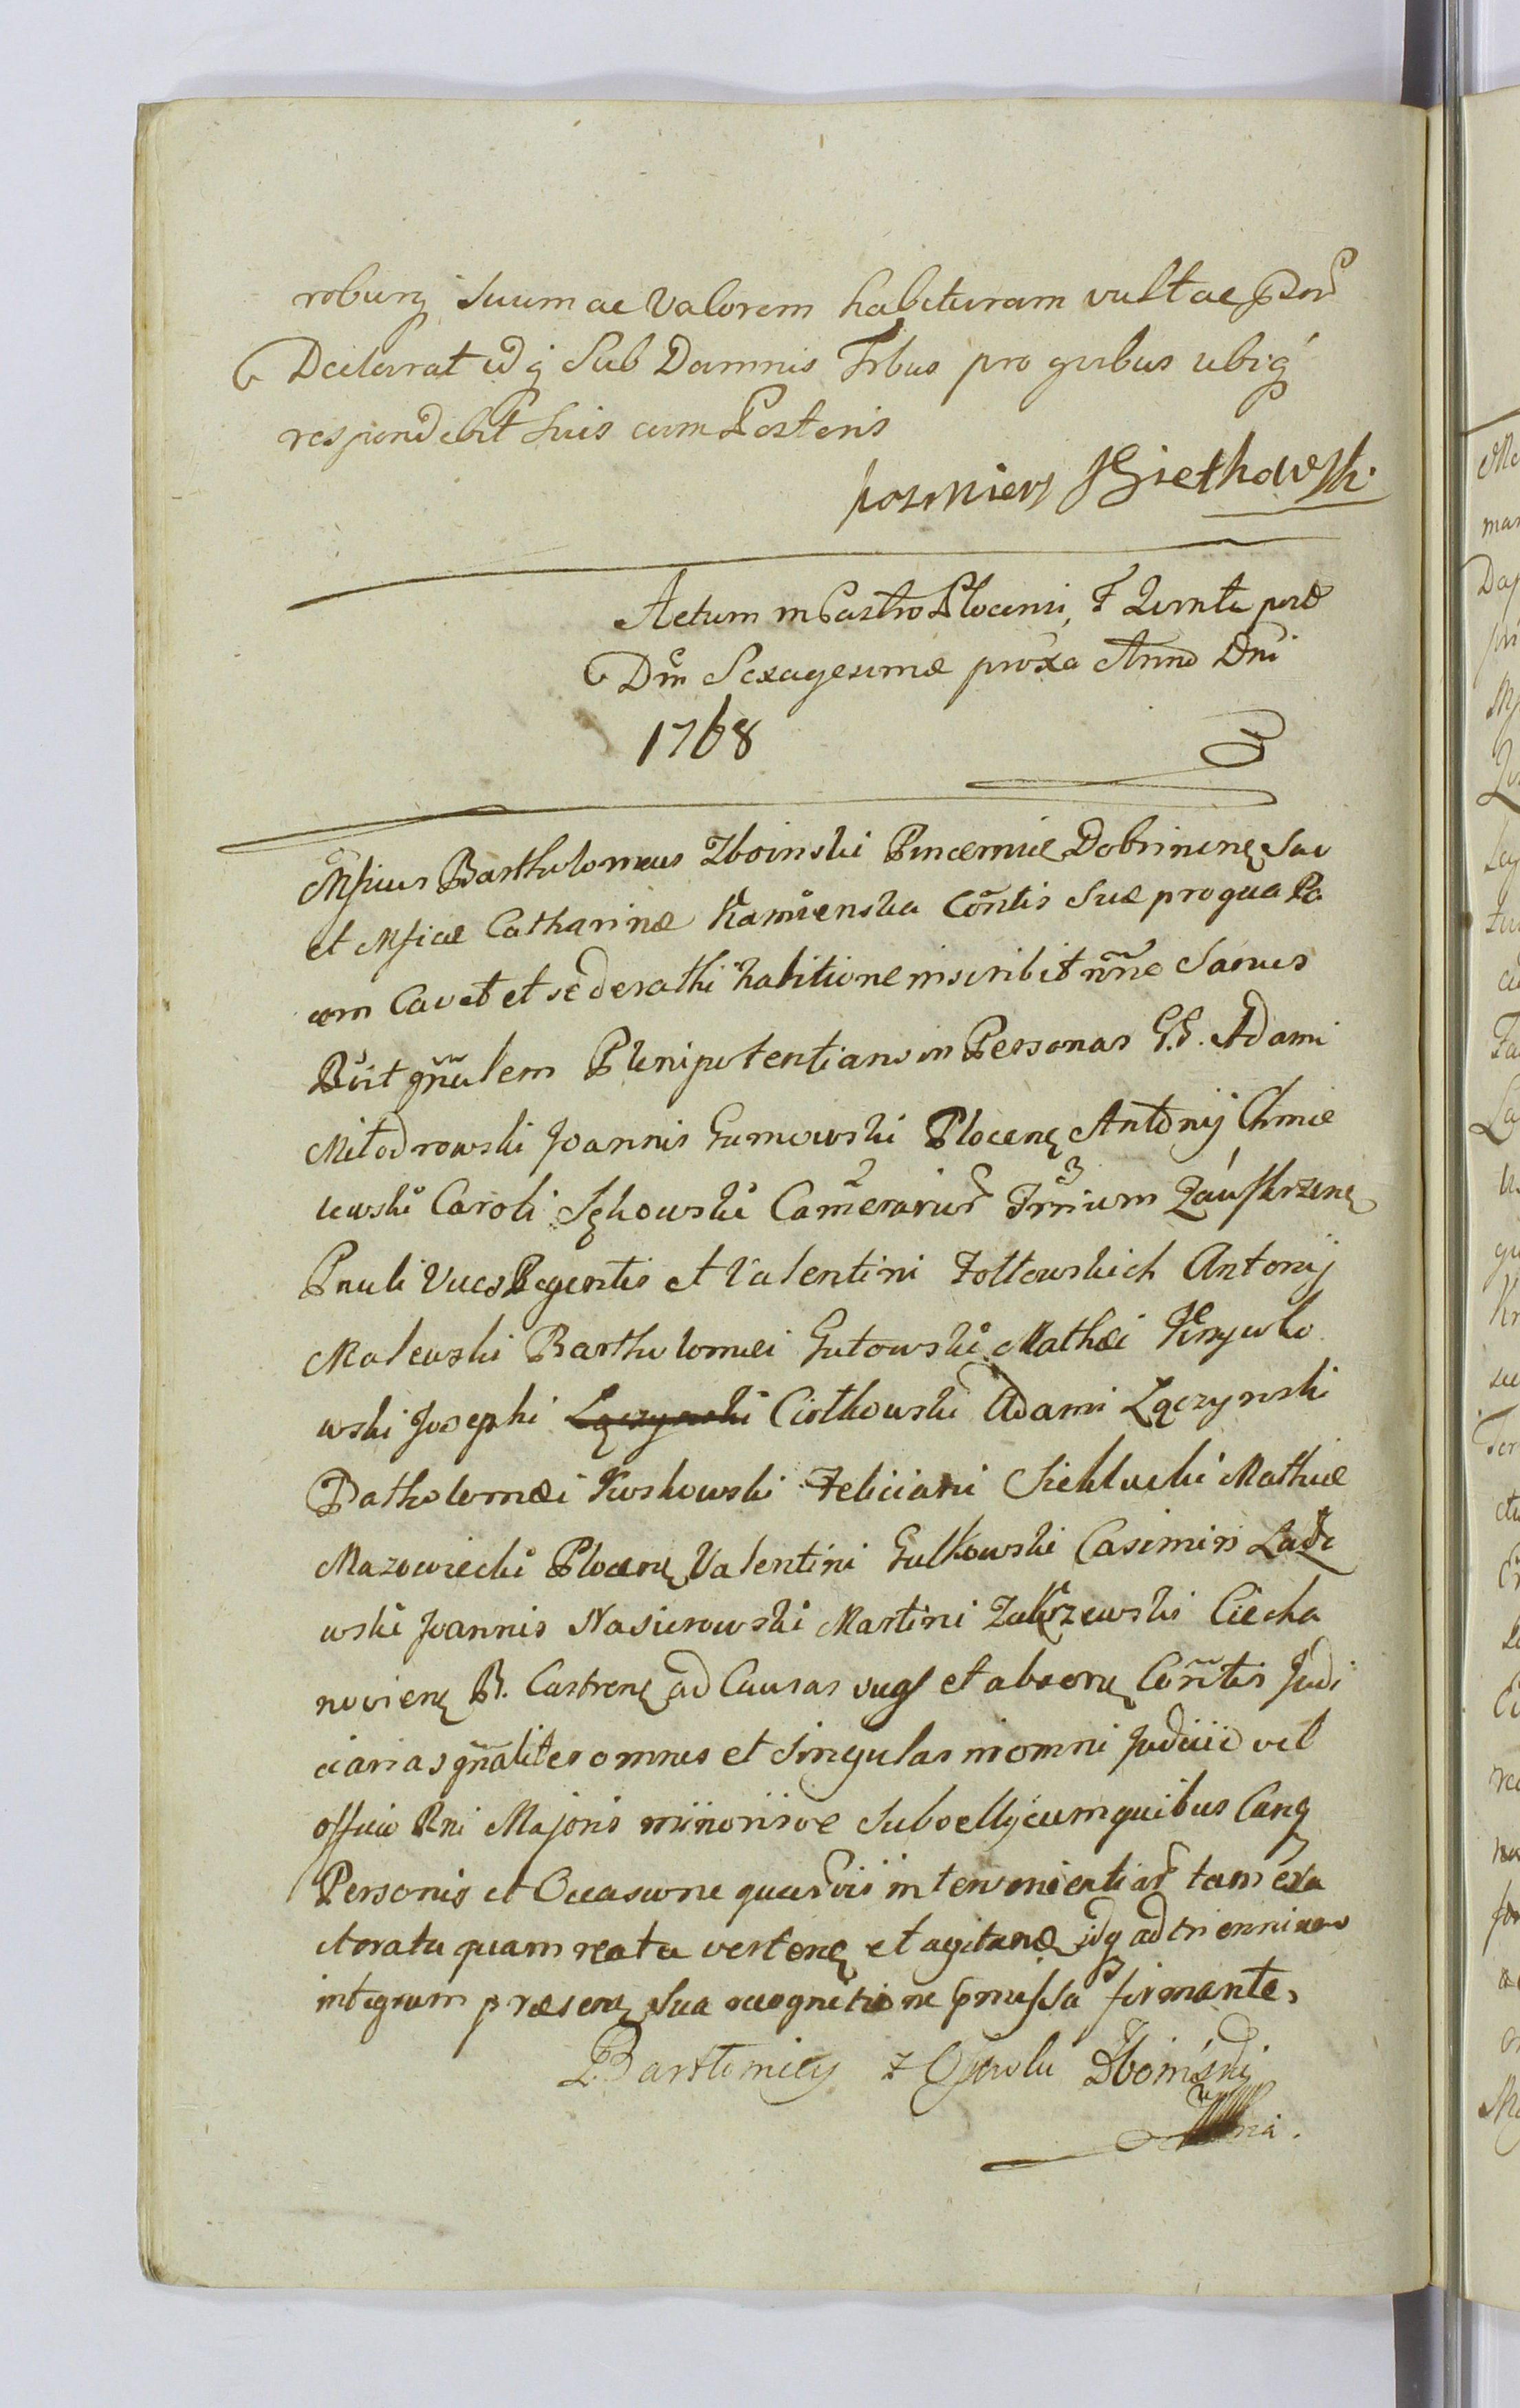 roburq suum ac Valorem habituram vult ac pnr
Declarat idq Sub Damnis Trbus pro quibus ubiq
respondebit suis cum Posteris
Kazmierz Gietkowski
Actum in Castro Plocensi, F Quinta post
Dm Sexagesimæ proxa Anno Dni
1768
Mficus Bartholomeus Zboinski Pincernæ Dobrinenę Suo
et Mficæ Catharinæ Kamienska Contis Suæ pro qua Ra
am Cavet et se de rathi habitione inscribit nne Sanus
gnalem Plenipotentiam in Personas G.G. Adami
Miłodrowski Joannis Gumowski Plocenę Antonij Chmie
lewski Caroli Sękowski Camerarior Trrium Zauskrzenę
Pauli Vices Regentis et Valentini Żołtowskich Antonij
Malewski Bartholomæi Gutowski Mathæi Krzywko
wski Josephi Ciołkowski Adami Łączynski
Batholomæi Koskowski Feliciani Sieklucki Mathiæ
Mazowiecki Plocenę Valentini Gulkowski Casimiri Lade
wski Joannis Nasierowski Martini Zakrzewski Ciecha
novienę R. Castrenę ad Causas suas et absenę Contis Judi
ciarias gnaliter omnes et singulas in omni Judicio vel
officio Rni Majoris minorisve Subsellij cum quibus Canq
Personis et Occasione quarvis intervenientiar tam exa
ctoratu quam reatu vertenę et agitanę idq ad triennium
integrum præsenę sua recognitione pmissa firmante,
Bartłomiey z Ossowki Zboinski